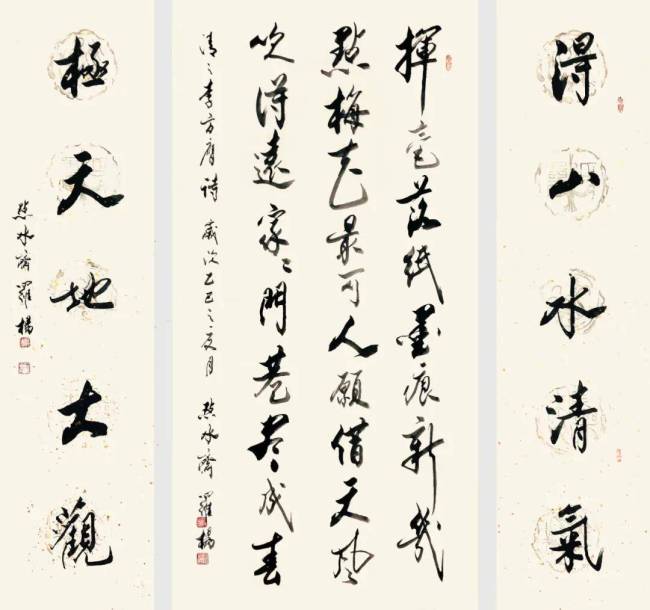 得山水清氣
揮毫落紙墨痕新幾
點梅花最可人願借天風
吹得遠家々門巷盡成春
清 李方膺詩 歲次乙巳之夏月 點水齋 羅楊
極天地大觀
點水齋 羅楊